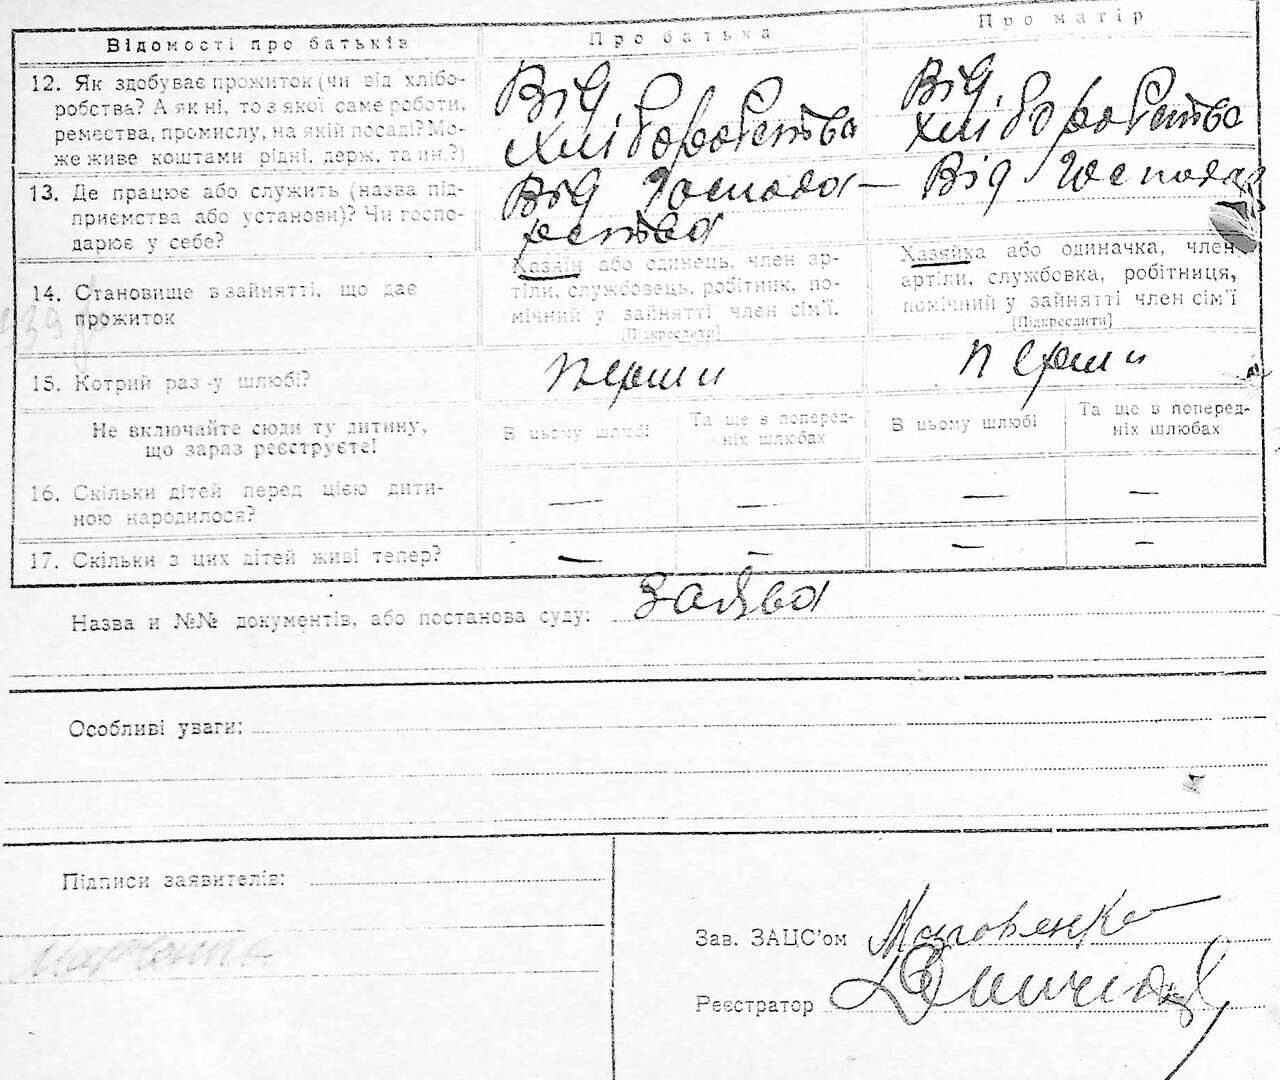 Відомості про батьків
Про батька
Про матір
12. Як здобуває прожиток (чи від хлібо-
робства? А як ні, то з якої саме роботи,
ремества, промислу, на якій посаді? Мо-
же живе коштами рідні, держ. та ин.?)
Від
хліборобства
Від
хліборобства
13. Де працює або служить (назва під-
приємства або установи)? Чи госпо-
дарює у себе?
Від Господа-
рства
Від Господа
14. Становище в зайнятті, що дає
прожиток
Хазяїн або одинець, член ар-
тіли, службовець, робітник, по-
мічний у зайнятті член сім'ї.
[Підкреслити]
Хазяйка або одиначка, член
артіли, службовка, робітниця,
помічний у зайнятті член сім'ї
[Підкреслити]
15. Котрий раз у шлюбі?
перши
перши
Не включайте сюди ту дитину,
що зараз реєструєте!
В цьому шлюбі
Та ще в поперед-
ніх шлюбах
В цьому шлюбі
Та ще в поперед-
ніх шлюбах
16. Скільки дітей перед цією дити-
ною народилося?
— — — —
17. Скільки з цих дітей живі тепер?
— — — —
Назва и №№ документів, або постанова суду: Заява
Особливі уваги:
Підписи заявителів:
Зав. ЗАЦС'ом
Реєстратор